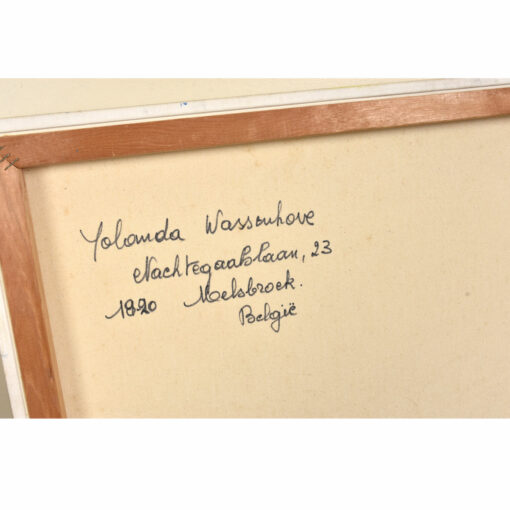 Yolanda Wassenhove
Nachtegaallaan, 23
1820 Melsbroek.
België